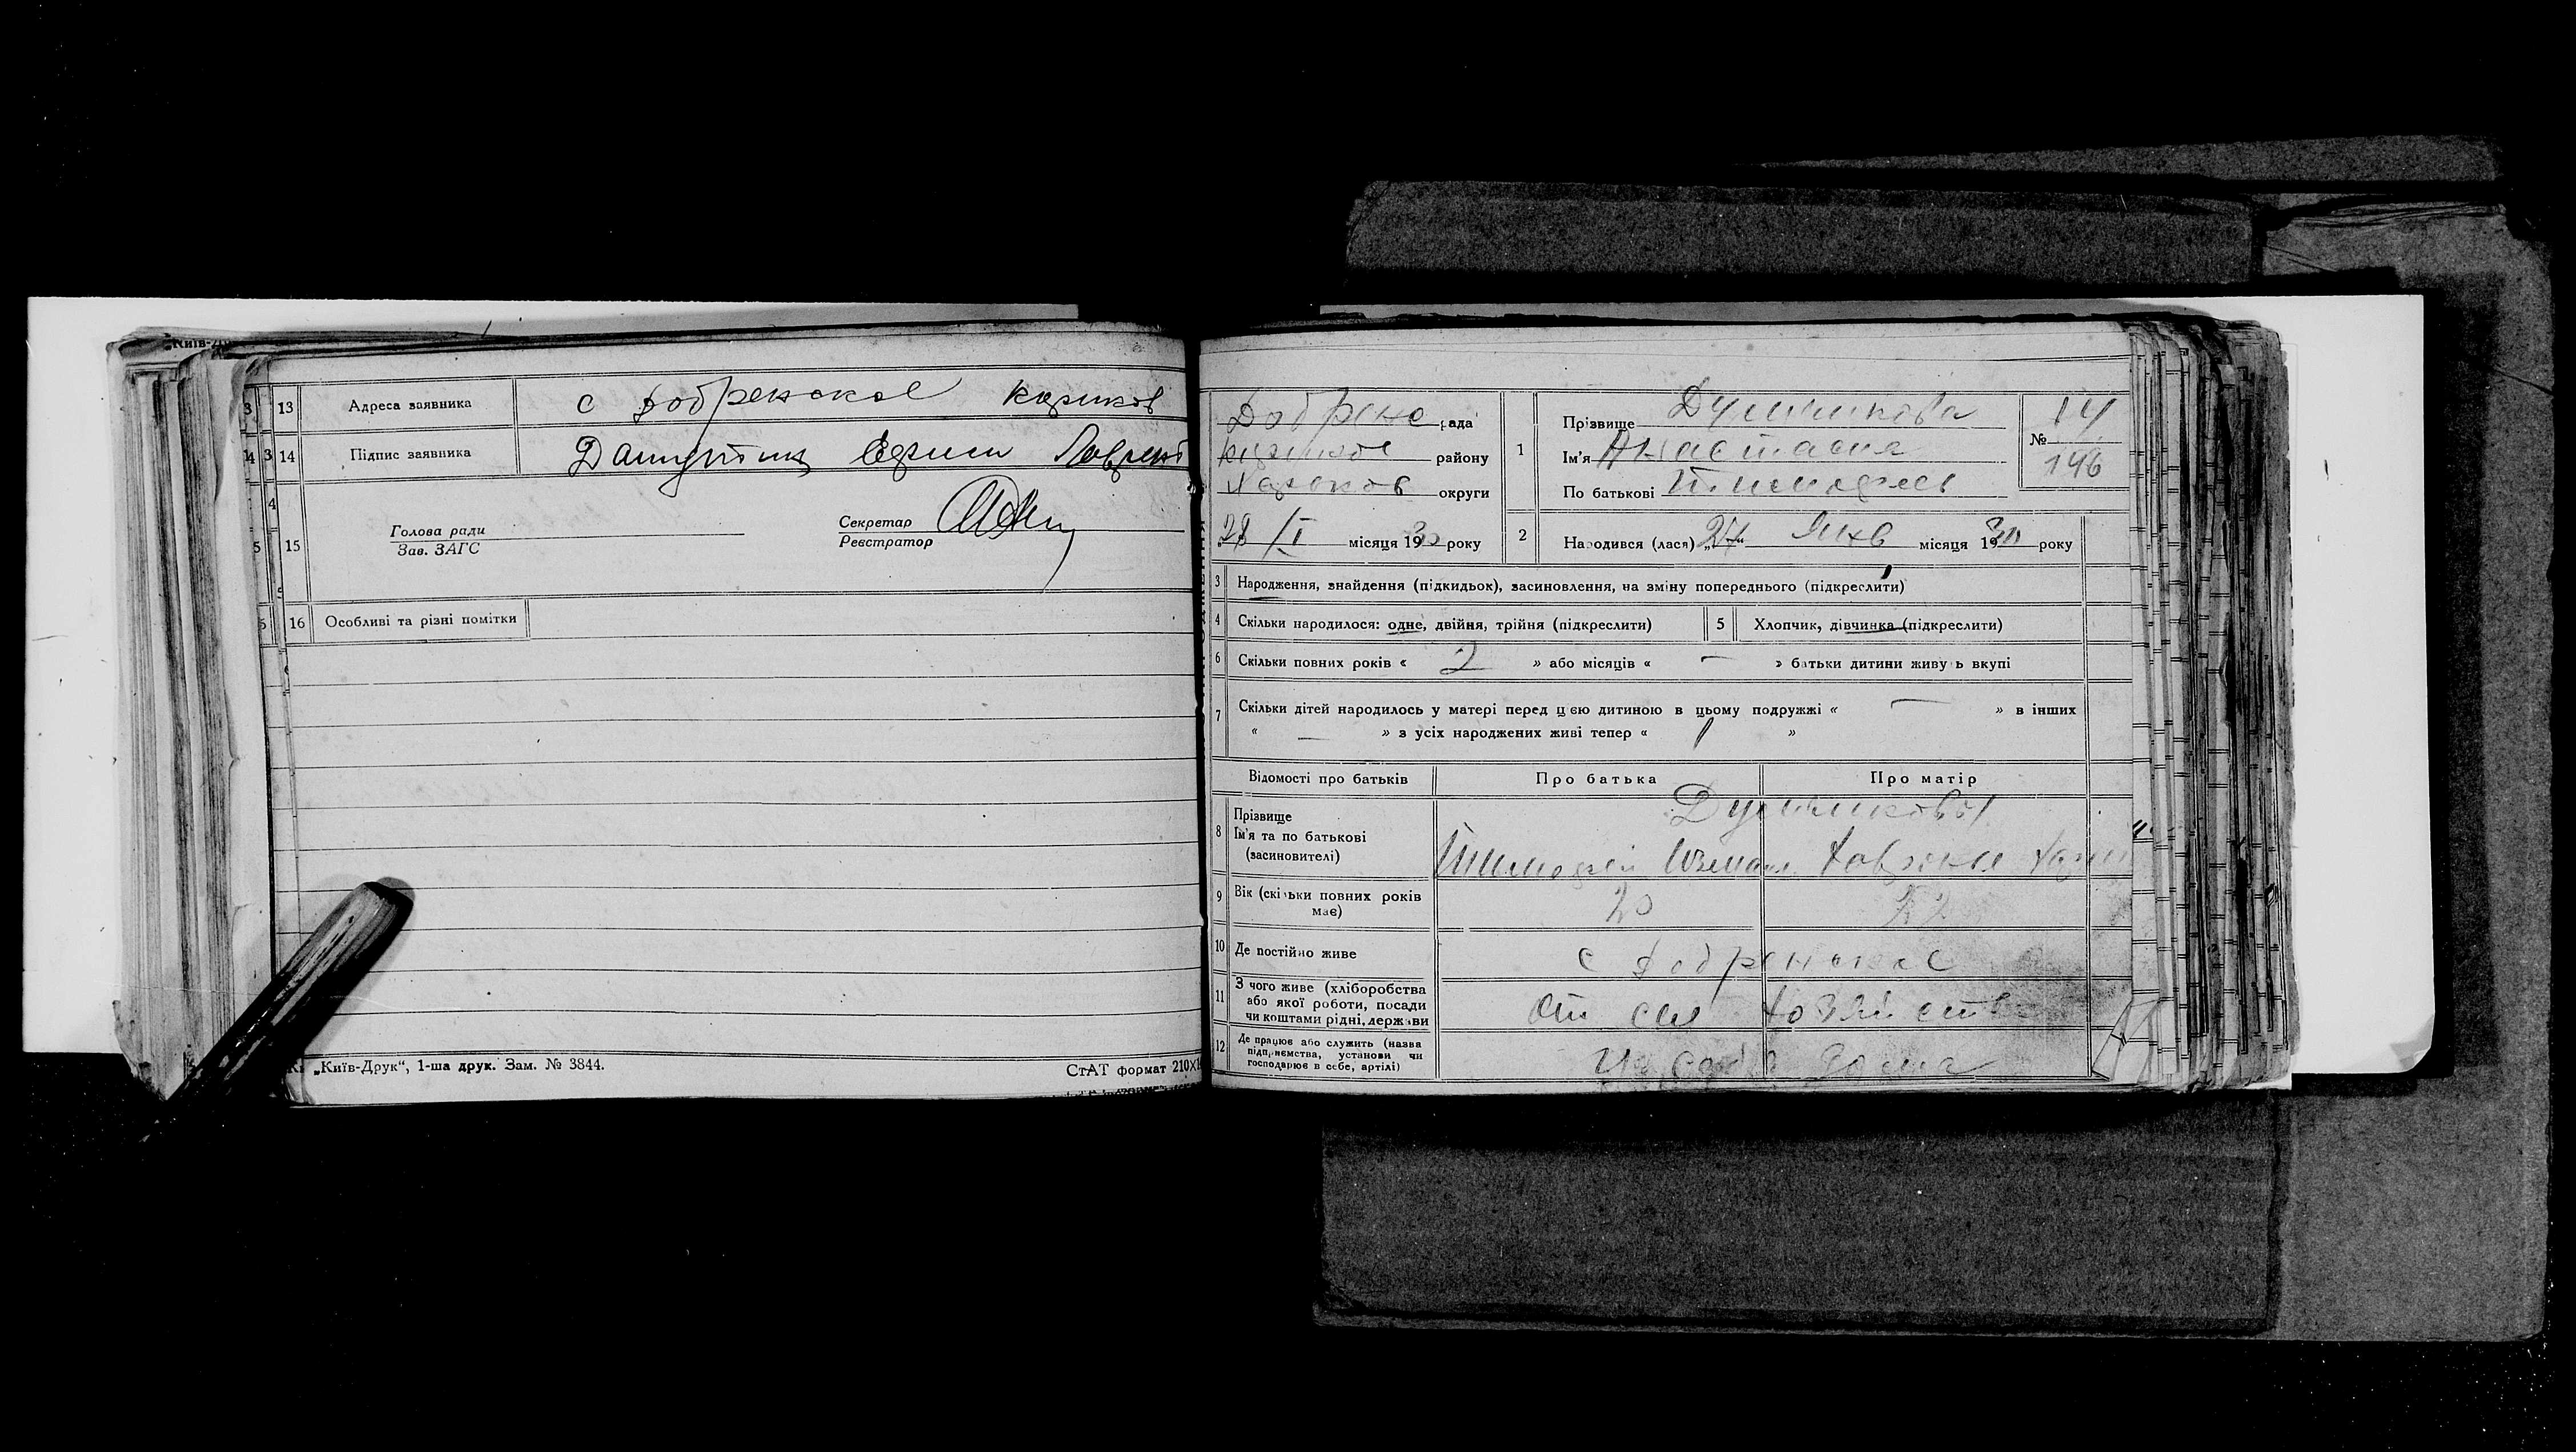 „Київ-
13 Адреса заявника с Добренское
14 Підпис заявника Ефим
15 Голова ради
Зав. ЗАГС
Секретар
Реєстратор
16 Особливі та різні помітки
„Київ-Друк“, 1-ша друк. Зам. № 3844.
СтАТ формат 210×
Добрене рада
району
Харков округи
28/I місяця 1930 року
1 Прізвище
Ім'я Анастасия
По батькові Тимофеев
№ 14
146
2 Народився (лася) „27“ Янв місяця 1930 року
3 Народження, знайдення (підкидьок), засиновлення, на зміну попереднього (підкреслити)
4 Скільки народилося: одне, двійня, трійня (підкреслити)
5 Хлопчик, дівчинка (підкреслити)
6 Скільки повних років « 2 » або місяців « — » батьки дитини живуть вкупі
7 Скільки дітей народилось у матері перед цією дитиною в цьому подружжі « — » в інших
« — » з усіх народжених живі тепер « 1 »
Відомості про батьків Про батька Про матір
8 Прізвище
Ім'я та по батькові
(засиновителі)
Тимофей
9 Вік (скільки повних років
має) 20
10 Де постійно живе с Добренское
11 З чого живе (хліборобства
або якої роботи, посади
чи коштами рідні, держави
От сел хозяйства
12 Де працює або служить (назва
підприємства, установи чи
господарює в себе, артілі)